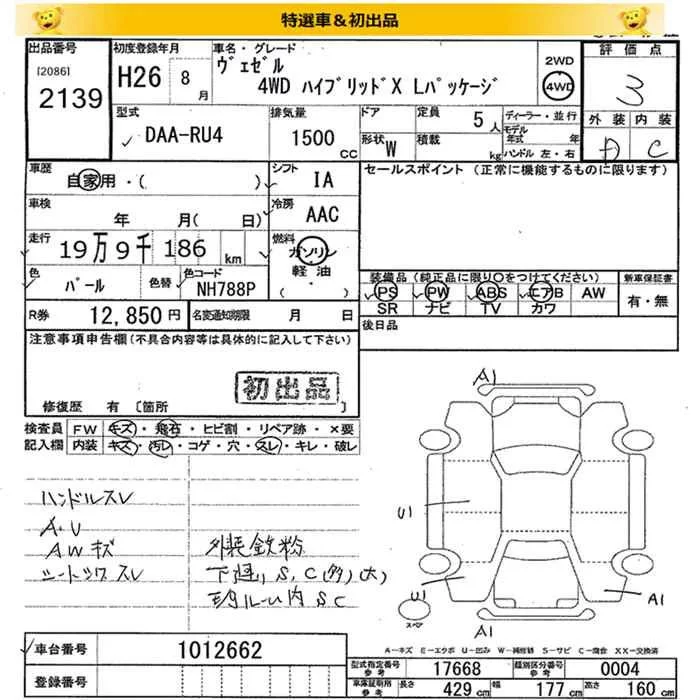 特選車＆初出品
出品番号
[2086]
2139
初度登録年月
H26 8月
車名・グレード
ヴェゼル
4WD ハイブリッドX Lパッケージ
2WD
4WD
評価点
3
外装 内装
D C
型式
DAA-RU4
排気量
1500 CC
ドア
形状 W
定員 5人
積載 kg
ディーラー・並行
モデル年式 年
ハンドル 左・右
車歴
自家用・( )
シフト
IA
セールスポイント (正常に機能するものに限ります)
車検
年 月( 日)
冷房
AAC
走行
19万9千186 km
燃料
ガソリン
軽油
( ・ )
色
パール
色替
色コード
NH788P
装備品(純正品に限り〇をつけてください)
PS PW ABS エアB AW
SR ナビ TV カワ
新車保証書
有・無
R券 12,850円
名変通知期限 月 日
後日品
注意事項申告欄(不具合内容等は具体的に記入して下さい)
初出品
修復歴 有 [箇所 ]
検査員記入欄
FW キズ・飛石・ヒビ割・リペア跡・×要
内装 キズ・汚レ・コゲ・穴・スレ・キレ・破レ
ハンドルスレ
A・U
AWキズ
シートツウスレ
外装鉄粉
下廻り S, C(多)(大)
A1
U1
U1
A1
A1
スペア
A−キズ E−エクボ U−凹ミ W−補修跡 S−サビ C−腐食 XX−交換済
車台番号 1012662
登録番号
型式指定番号 参考 17668
類別区分番号 参考 0004
車庫証明用 参考
長さ 429cm 幅 177cm 高さ 160cm